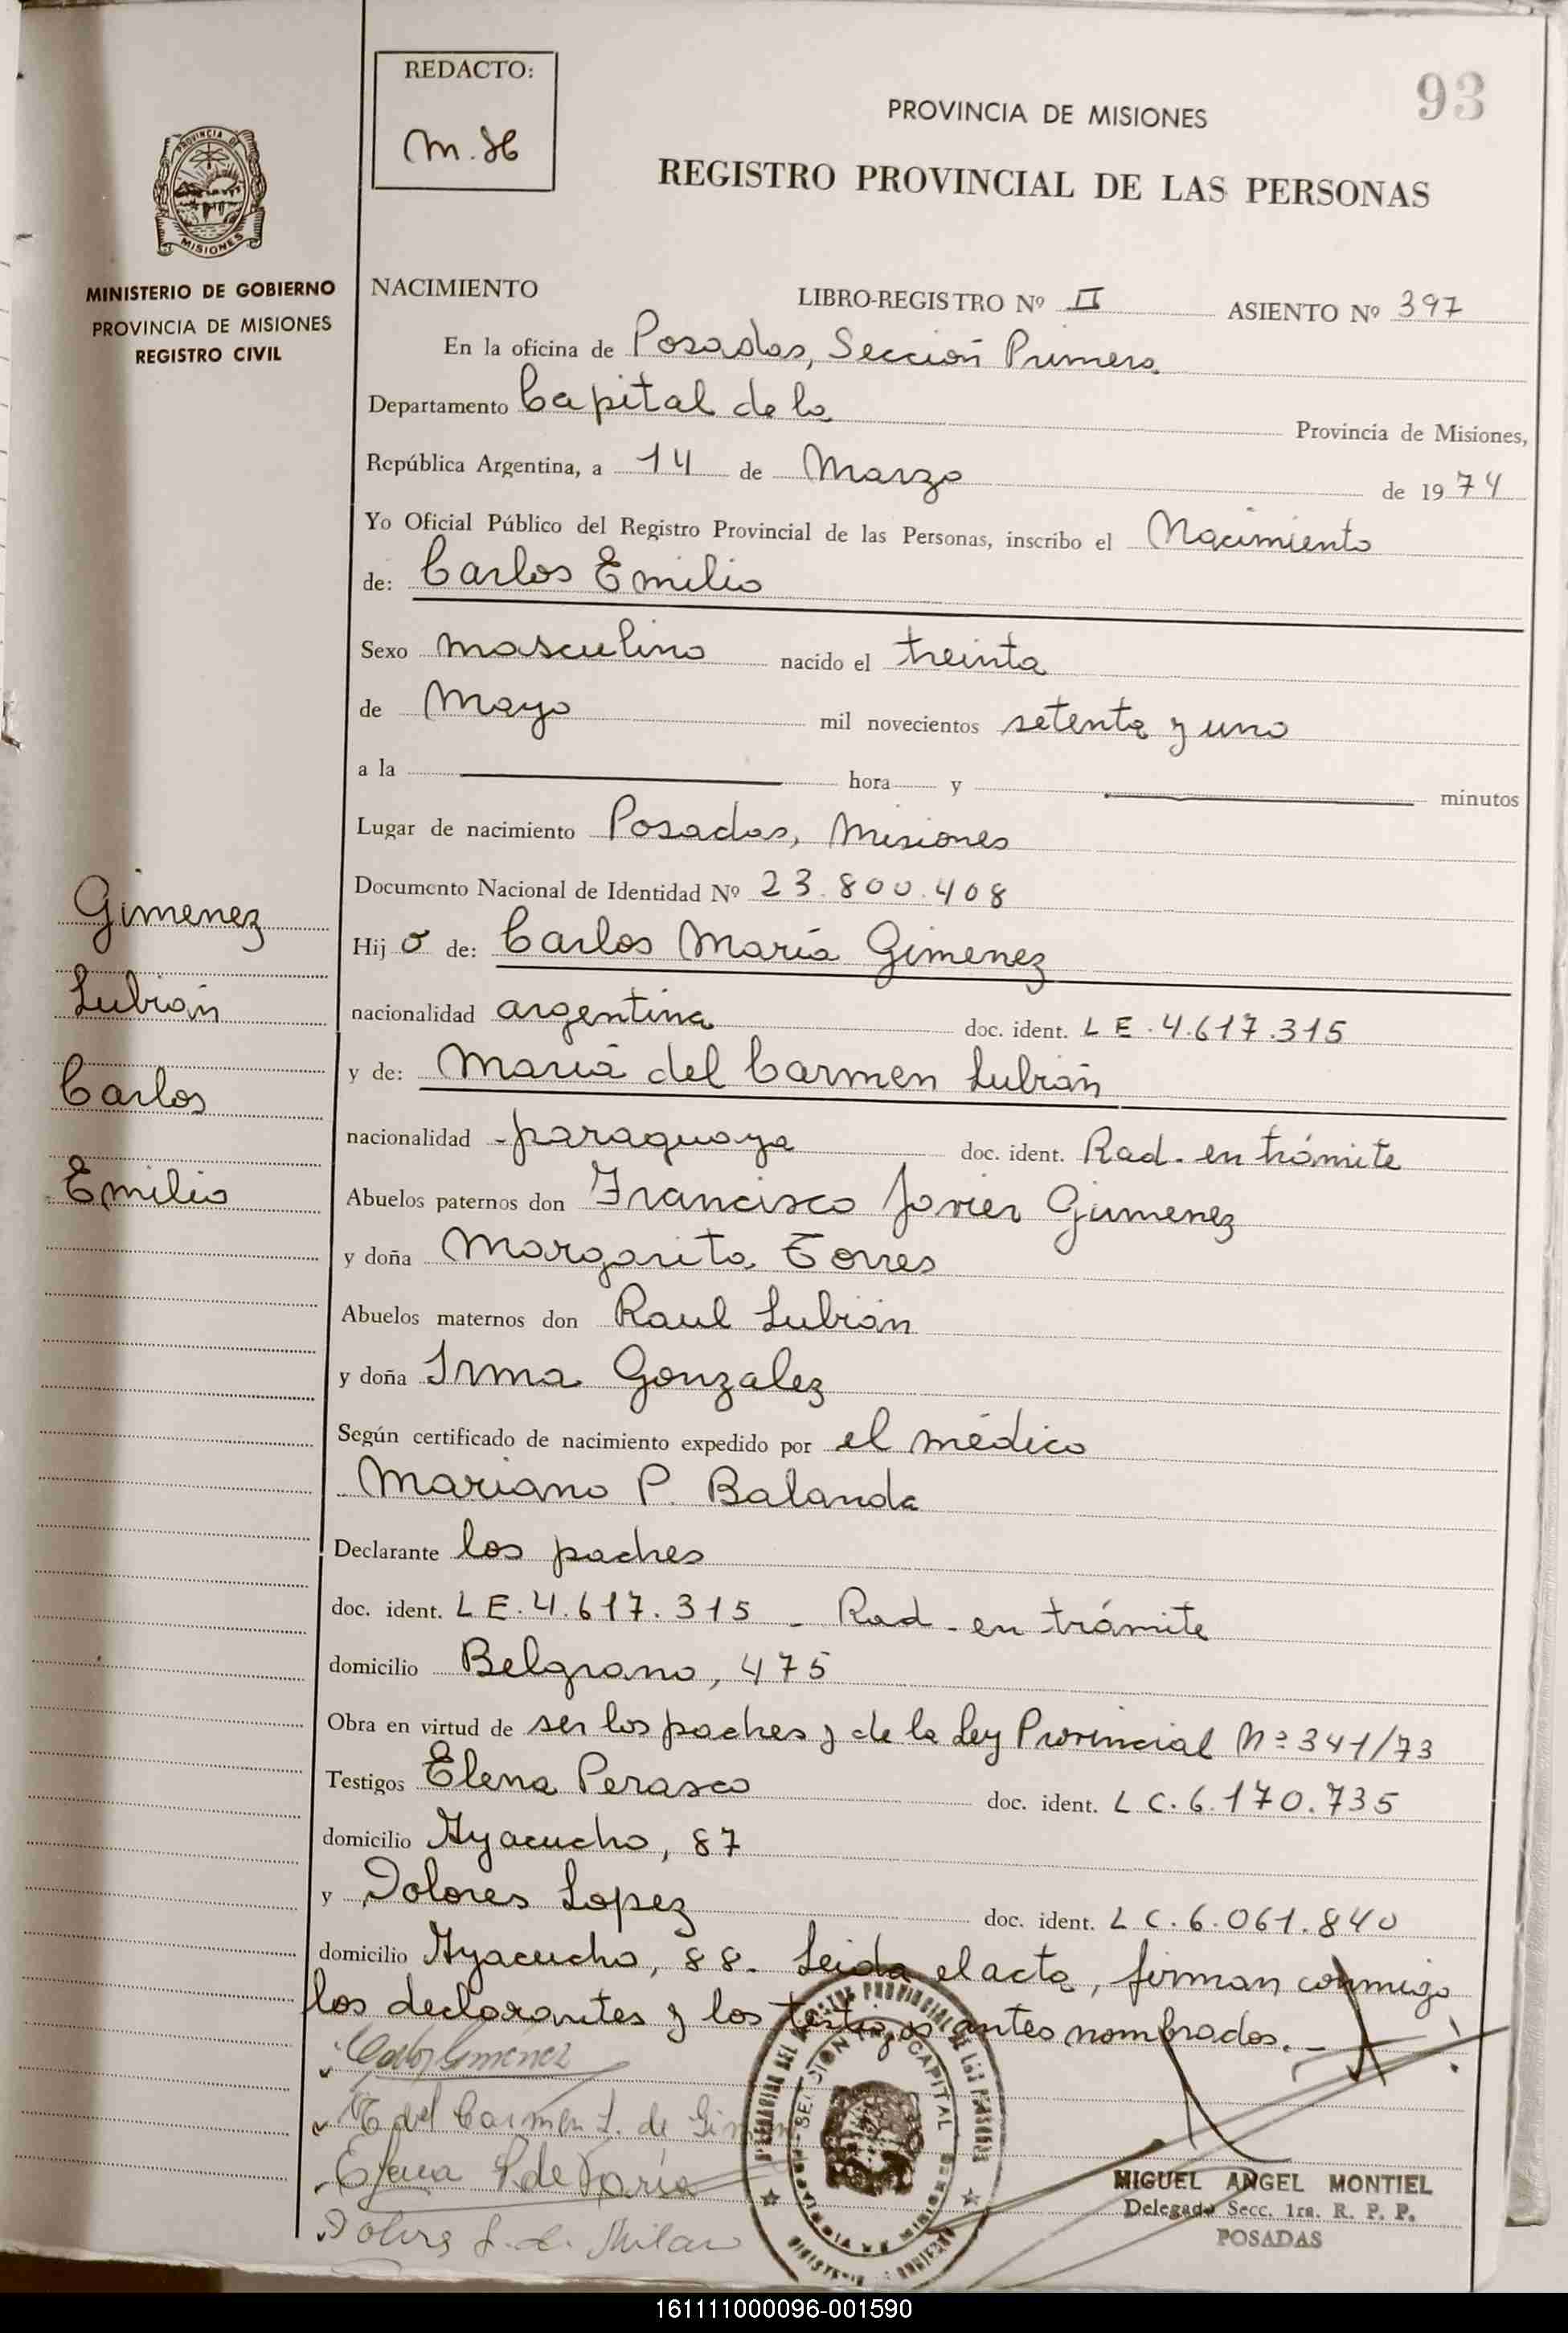 REDACTO:
M.H
93
PROVINCIA DE MISIONES
REGISTRO PROVINCIAL DE LAS PERSONAS
PROVINCIA DE
MISIONES
MINISTERIO DE GOBIERNO
PROVINCIA DE MISIONES
REGISTRO CIVIL
NACIMIENTO LIBRO-REGISTRO Nº II ASIENTO Nº 397
En la oficina de Posadas, Sección Primera
Departamento Capital de la Provincia de Misiones,
República Argentina, a 14 de Marzo de 1974
Yo Oficial Público del Registro Provincial de las Personas, inscribo el Nacimiento
de: Carlos Emilio
Sexo masculino nacido el treinta
de Mayo mil novecientos setenta y uno
a la hora y minutos
Lugar de nacimiento Posadas, Misiones
Documento Nacional de Identidad Nº 23.800.408
Gimenez
Lubián
Carlos
Emilio
Hij o de: Carlos María Gimenez
nacionalidad argentina doc. ident. L E. 4.617.315
y de: María del Carmen Lubián
nacionalidad paraguaya doc. ident. Rad. en trámite
Abuelos paternos don Francisco Javier Gimenez
y doña Margarita Torres
Abuelos maternos don Raul Lubián
y doña Irma Gonzalez
Según certificado de nacimiento expedido por el médico
Mariano P. Balanda
Declarante los padres
doc. ident. L E. 4.617.315 - Rad - en trámite
domicilio Belgrano, 475
Obra en virtud de ser los padres y de la Ley Provincial Nº 341/73
Testigos Elena Perasco doc. ident. L C. 6.170.735
domicilio Ayacucho, 87
y Dolores Lopez doc. ident. L C. 6.061.840
domicilio Ayacucho, 88. Leida el acta, firman conmigo
los declarantes y los testigos antes nombrados.-
Carlos Gimenez
M del Carmen L. de Gimenez
Elena P. de Faria
Dolores L. de Milan
CAPITAL
MIGUEL ANGEL MONTIEL
Delegado Secc. 1ra. R. P. P.
POSADAS
161111000096-001590